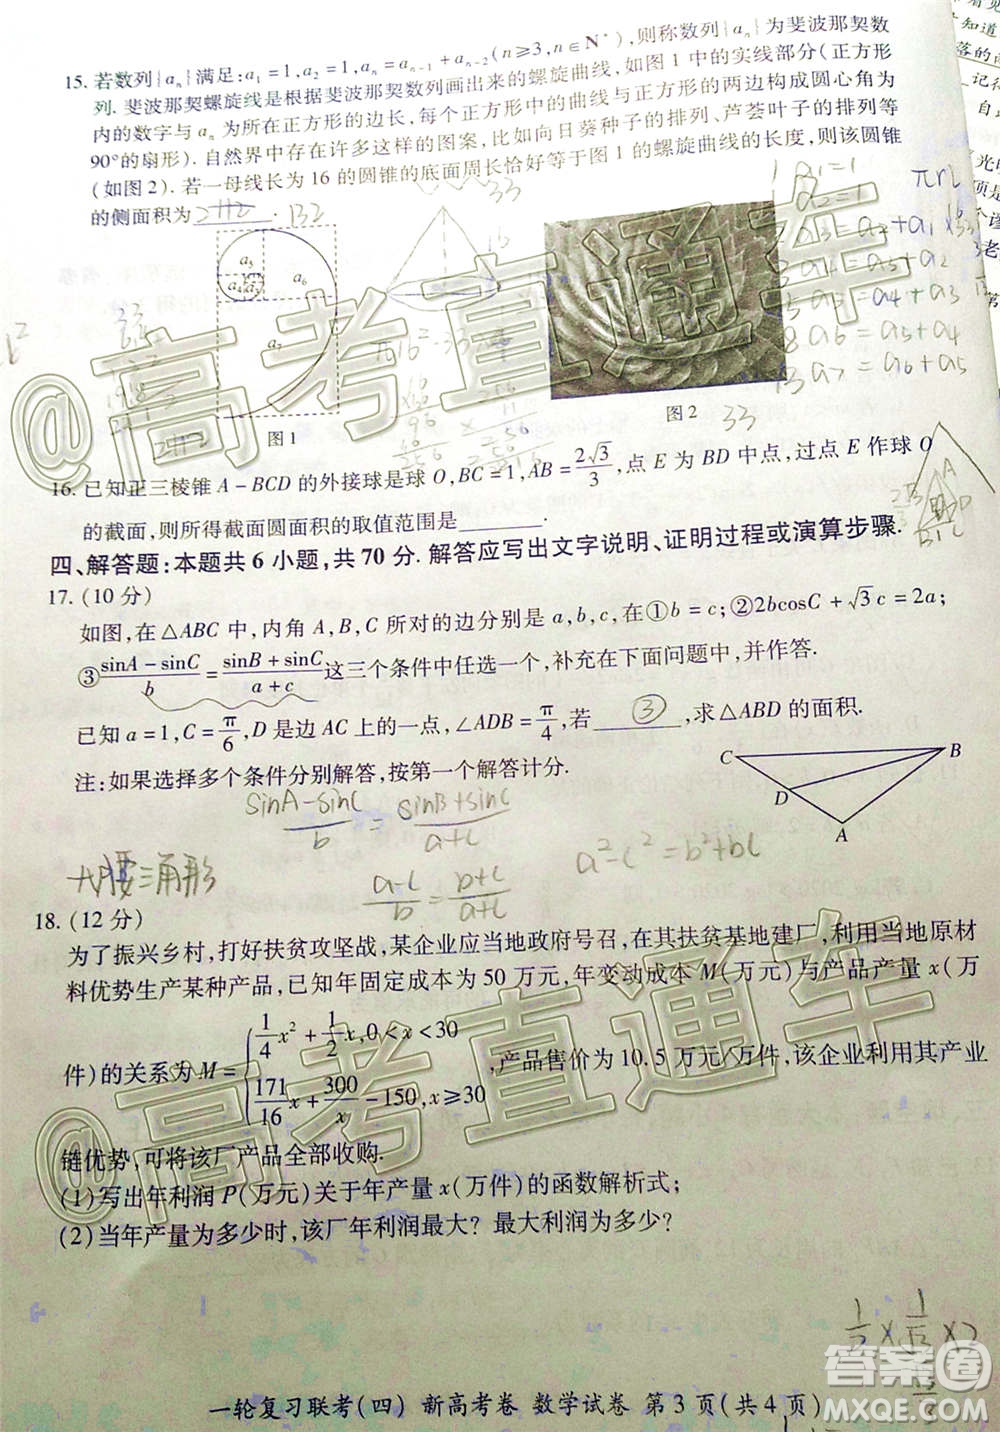 15. 若数列{aₙ}满足:a₁=1,a₂=1,aₙ=aₙ₋₁+aₙ₋₂(n≥3,n∈N*),则称数列{aₙ}为斐波那契数
列.斐波那契螺旋线是根据斐波那契数列画出来的螺旋曲线,如图1中的实线部分(正方形
内的数字与aₙ为所在正方形的边长,每一个正方形中的曲线与正方形的两边构成圆心角为
90°的扇形).自然界中存在许多这样的图案,比如向日葵种子的排列、芦荟叶子的排列等
(如图2).若一母线长为16的圆锥的底面周长恰好等于图1的螺旋曲线的长度,则该圆锥
的侧面积为 .
132
33
a₅
a₆
a₇
图1
图2
33
a₁=1
a₂=1
a₃=a₂+a₁
a₄=a₃+a₂
a₅=a₄+a₃
a₆=a₅+a₄
a₇=a₆+a₅
πrl
@高考直通车
16. 已知正三棱锥A-BCD的外接球是球O,BC=1,AB=2√3/3,点E为BD中点,过点E作球O
的截面,则所得截面圆面积的取值范围是________.
四、解答题:本题共6小题,共70分.解答应写出文字说明、证明过程或演算步骤.
17. (10分)
如图,在△ABC中,内角A,B,C所对的边分别是a,b,c,在①b=c;②2bcosC+√3c=2a;
③(sinA-sinC)/b=(sinB+sinC)/(a+c)这三个条件中任选一个,补充在下面问题中,并作答.
已知a=1,C=π/6,D是边AC上的一点,∠ADB=π/4,若 ③ ,求△ABD的面积.
注:如果选择多个条件分别解答,按第一个解答计分.
C
B
D
A
(sinA-sinC)/b=(sinB+sinC)/(a+c)
(a-c)/b=(b+c)/(a+c)
a²-c²=b²+bc
18. (12分)
为了振兴乡村,打好扶贫攻坚战,某企业应当地政府号召,在其扶贫基地建厂,利用当地原材
料优势生产某种产品,已知年固定成本为50万元,年变动成本M(万元)与产品产量x(万
件)的关系为M={1/4x²+1/2x,0<x<30
171/16x+300/x-150,x≥30,产品售价为10.5万元/万件,该企业利用其产业
链优势,可将该厂产品全部收购.
(1)写出年利润P(万元)关于年产量x(万件)的函数解析式;
(2)当年产量为多少时,该厂年利润最大?最大利润为多少?
@高考直通车
一轮复习联考(四) 新高考卷 数学试卷 第3页(共4页)
答案圈
MXQE.COM